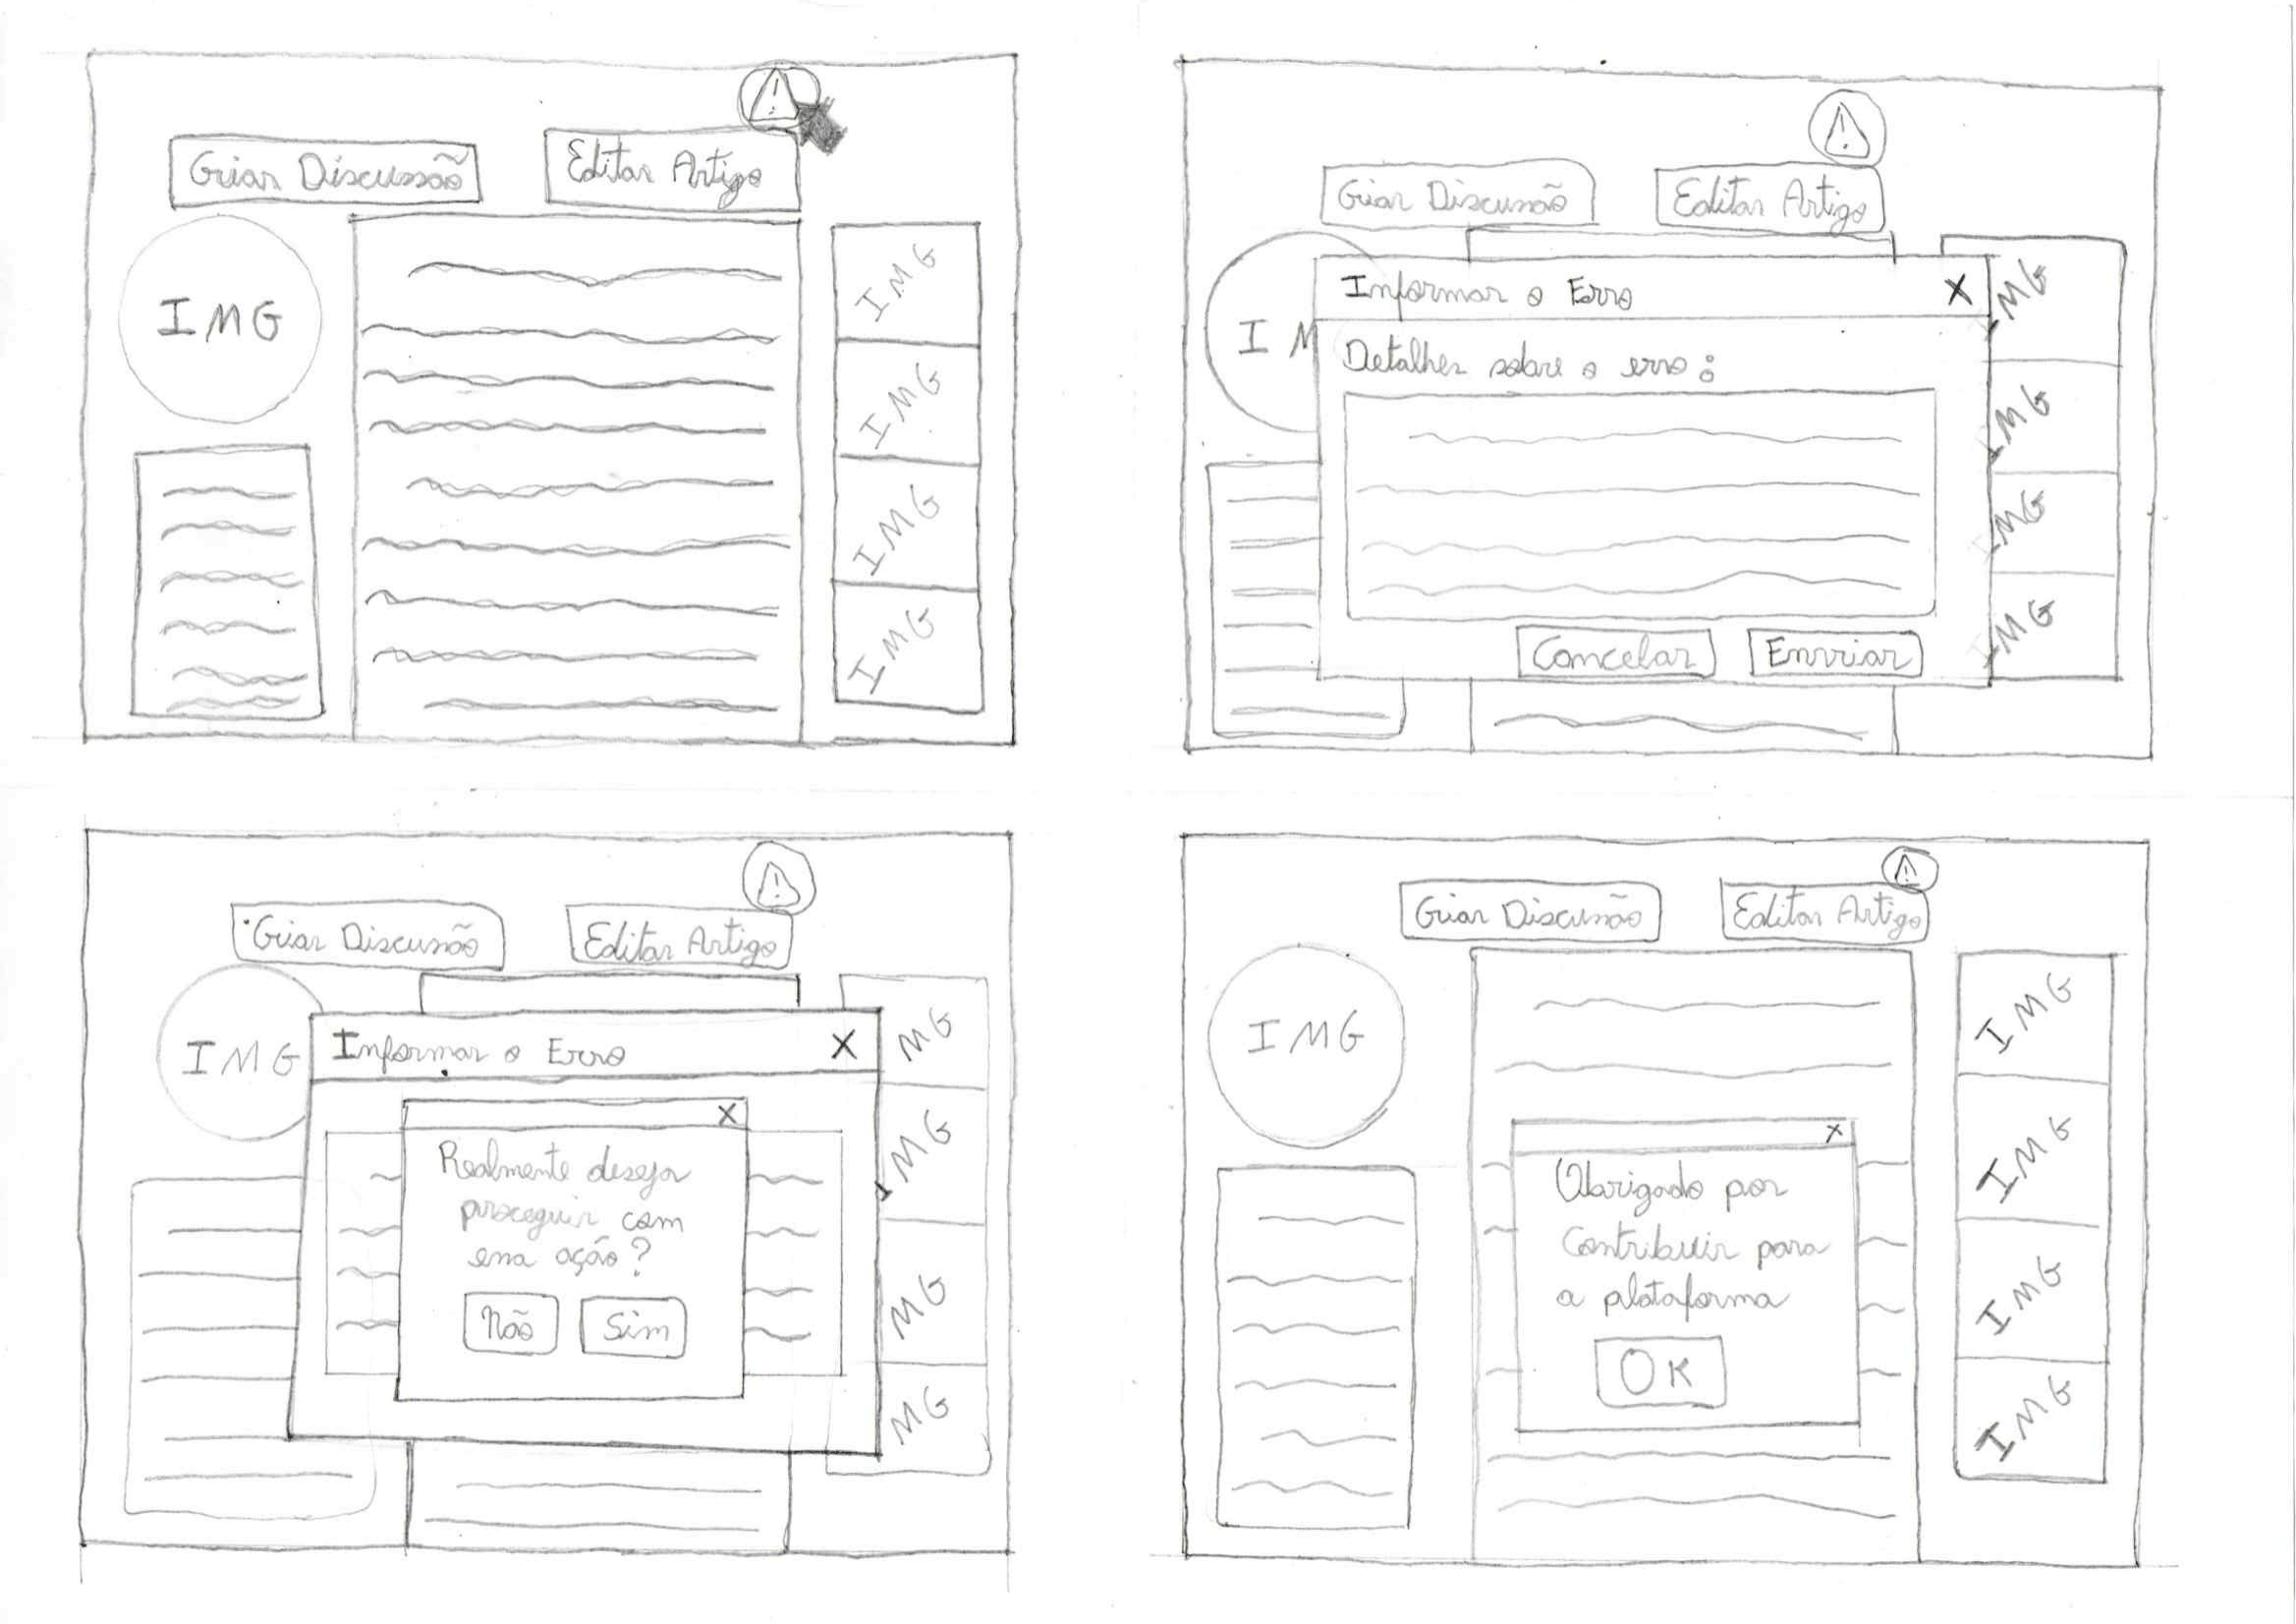 Criar Discussão
Editar Artigo
IMG
IMG
IMG
IMG
IMG
Criar Discussão
Editar Artigo
IM
Informar o Erro X
Detalhes sobre o erro:
Cancelar Enviar
IMG
IMG
IMG
IMG
Criar Discussão
Editar Artigo
IMG
Informar o Erro X
X
Realmente deseja
prosseguir com
essa ação?
Não Sim
MG
IMG
MG
MG
Criar Discussão
Editar Artigo
IMG
X
Obrigado por
Contribuir para
a plataforma
OK
IMG
IMG
IMG
IMG